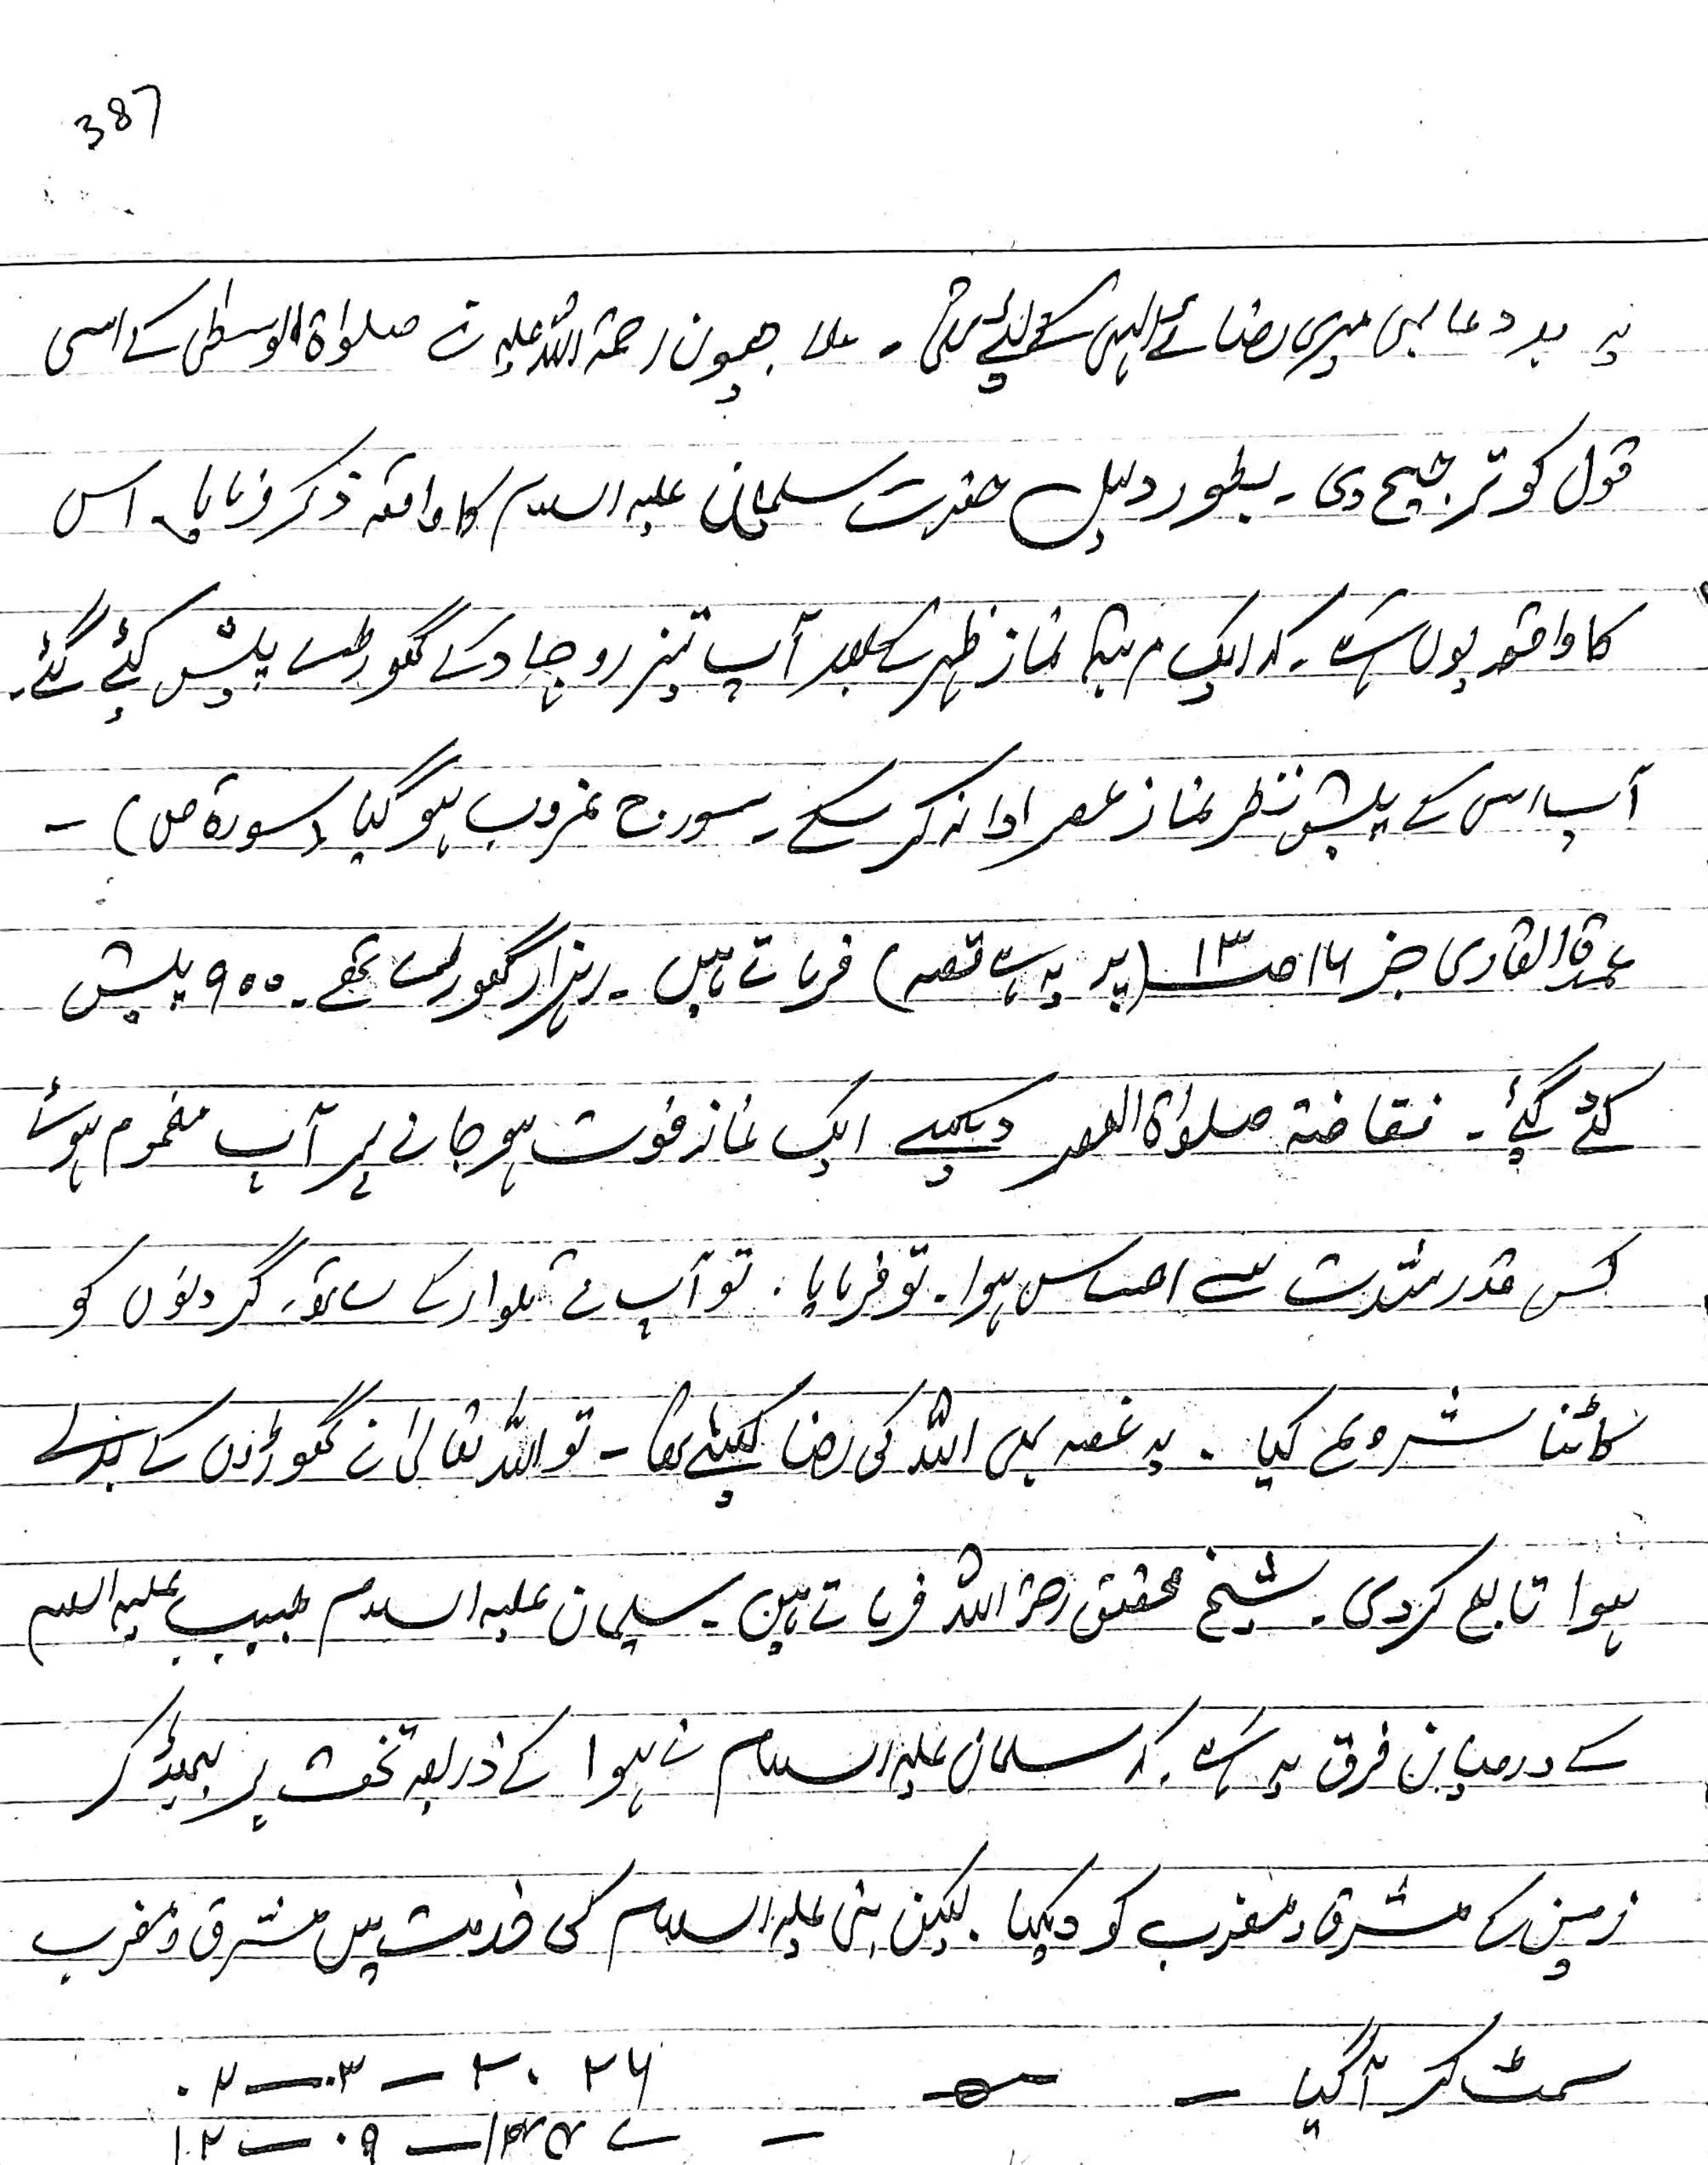 387
یہ بد دعا بھی میری رضائے الہی کے لئے تھی ۔ ملا جیون رحمۃ اللہ علیہ نے صلوٰۃ الوسطی کے اسی
قول کو ترجیح دی ۔ بطور دلیل حضرت سلیمان علیہ السلام کا واقعہ ذکر فرمایا ۔ اس
کا واقعہ یوں ہے ۔ کہ ایک مرتبہ نماز ظہر کے بعد آپ تیز رو جہاد کے گھوڑے پیش کئے گئے ۔
آپ اس کے پیش نظر نماز عصر ادا نہ کر سکے ۔ سورج غروب ہو گیا (سورۃ ص) ۔
عمدۃ القاری جز ۱۶ صـ ۱۳ (پر یہ ہے قصہ) فرماتے ہیں ۔ ہزار گھوڑے تھے ۔ ۹۰۰ پیش
کئے گئے ۔ صلوٰۃ العصر دیکھیے ایک نماز فوت ہو جانے پر آپ مغموم ہوئے
کس قدر شدت سے احساس ہوا ۔ تو فرمایا ۔ تو آپ نے تلوار کے ساتھ گردنوں کو
کاٹنا شروع کیا ۔ یہ غصہ بھی اللہ کی رضا کیلئے تھا ۔ تو اللہ تعالیٰ نے گھوڑوں کے بدلے
ہوا تابع کر دی ۔ شیخ محقق رحمۃ اللہ فرماتے ہیں ۔ سلیمان علیہ السلام حبیب علیہ السلام
کے درمیان فرق یہ ہے ۔ کہ سلیمان علیہ السلام نے ہوا کے ذریعہ تخت پر بیٹھ کر
زمین کے مشرق و مغرب کو دیکھا ۔ لیکن نبی علیہ السلام کی خدمت میں مشرق و مغرب
سمٹ کر آ گیا ۔ ۰۲ — ۰۳ — ۲۰۲۶
۱۲ — ۰۹ — ۱۴۴۷